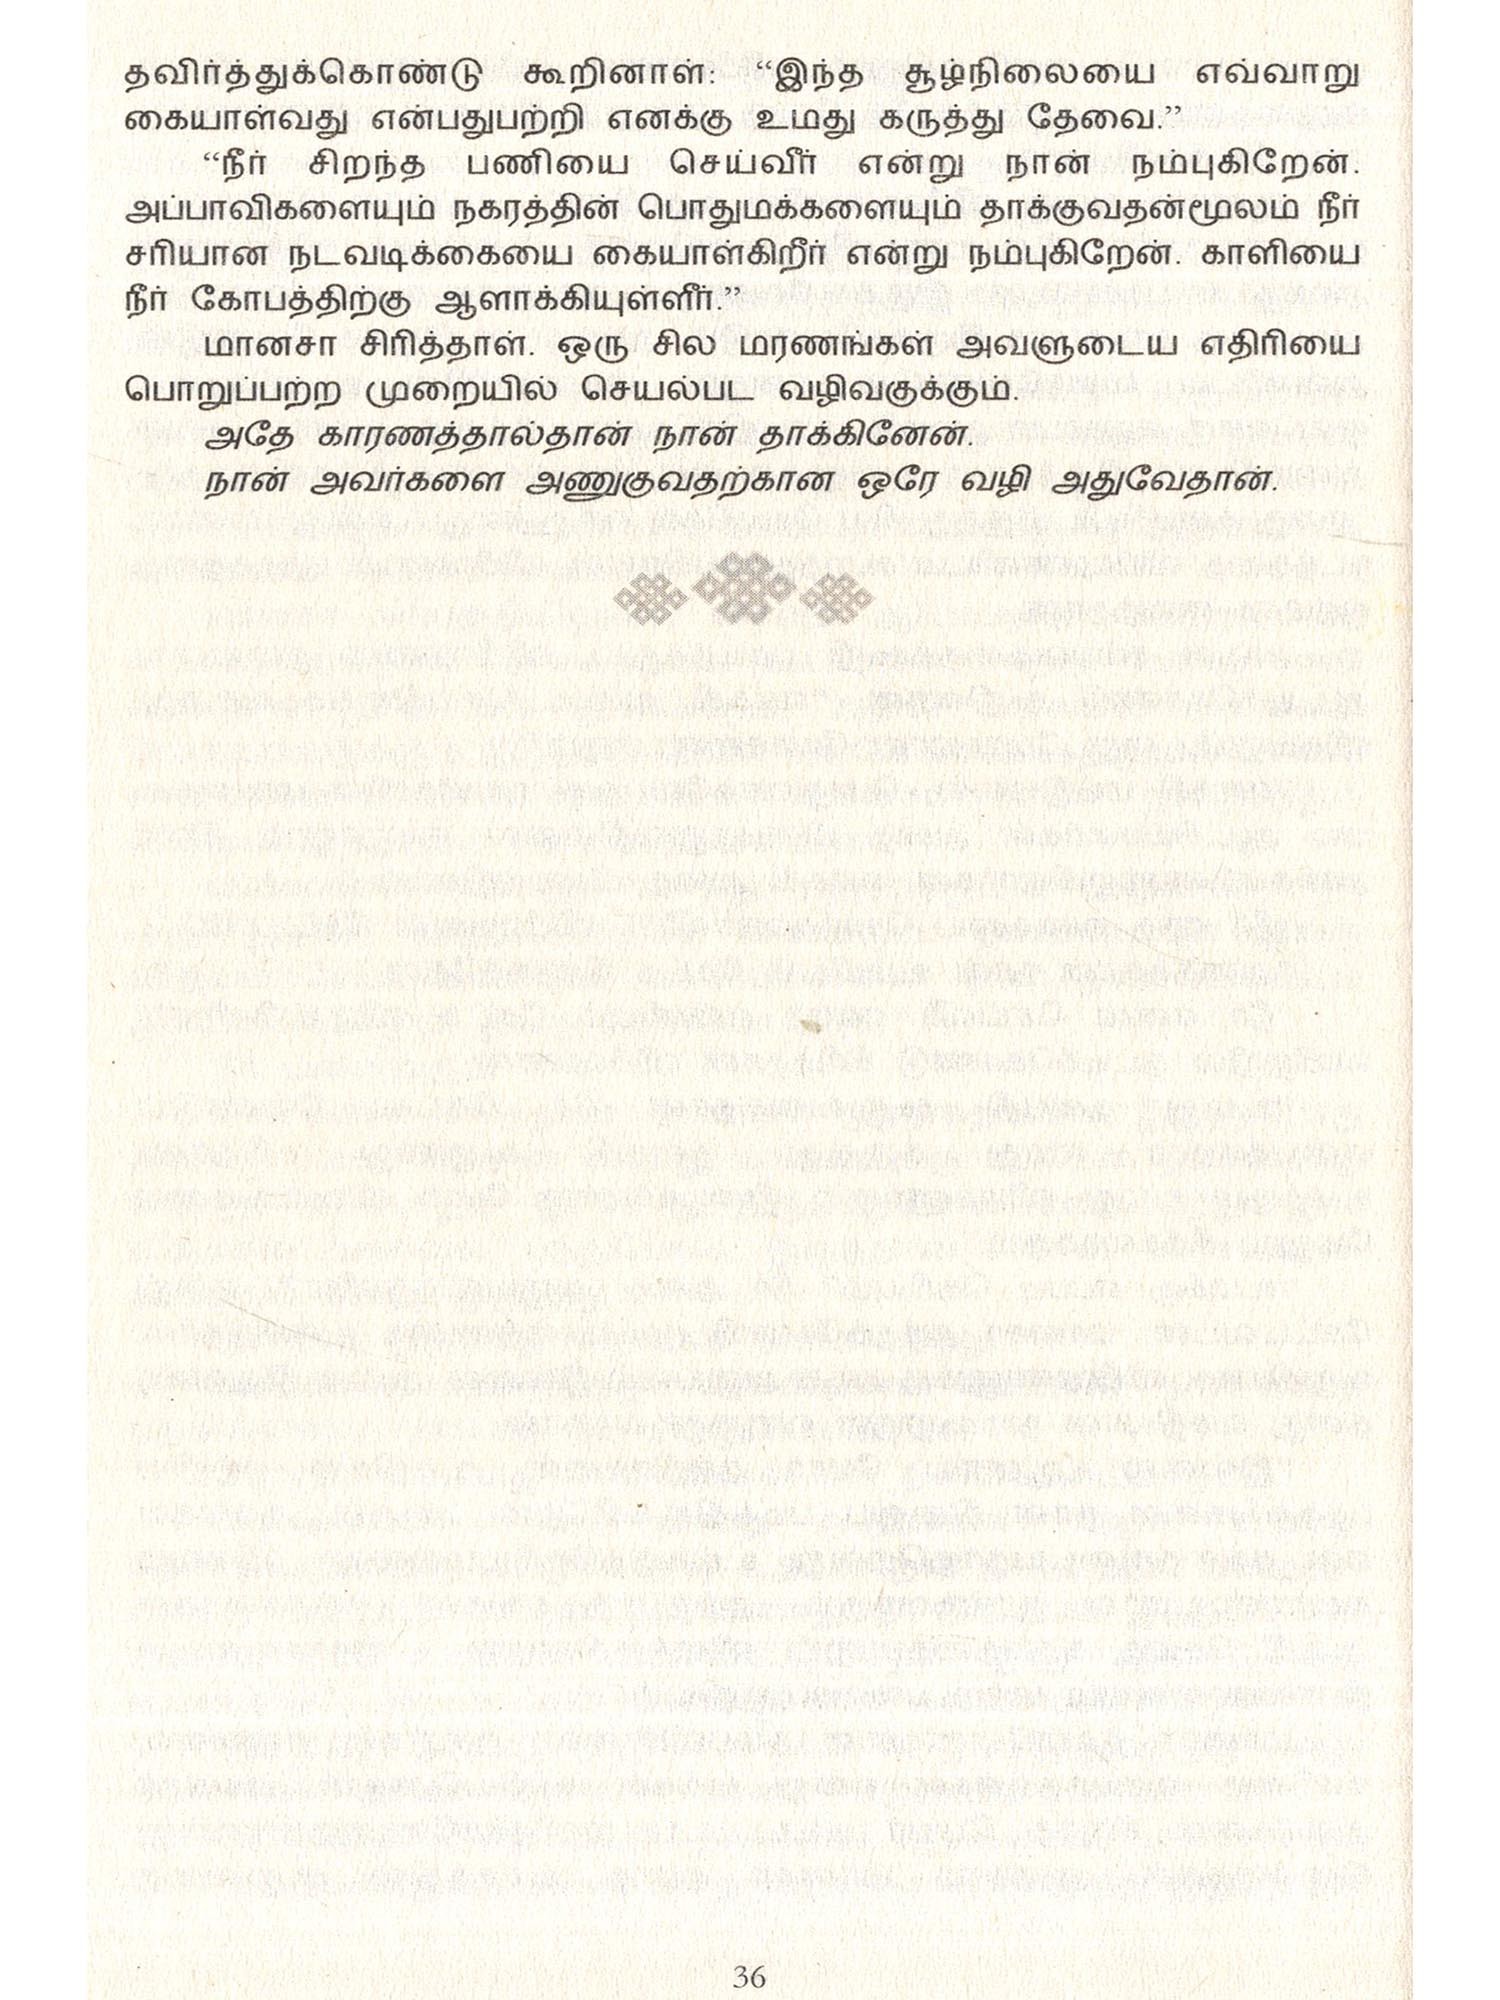 தவிர்த்துக்கொண்டு கூறினாள்: “இந்த சூழ்நிலையை எவ்வாறு
கையாள்வது என்பதுபற்றி எனக்கு உமது கருத்து தேவை.”
“நீர் சிறந்த பணியை செய்வீர் என்று நான் நம்புகிறேன்.
அப்பாவிகளையும் நகரத்தின் பொதுமக்களையும் தாக்குவதன்மூலம் நீர்
சரியான நடவடிக்கையை கையாள்கிறீர் என்று நம்புகிறேன். காளியை
நீர் கோபத்திற்கு ஆளாக்கியுள்ளீர்.”
மானசா சிரித்தாள். ஒரு சில மரணங்கள் அவளுடைய எதிரியை
பொறுப்பற்ற முறையில் செயல்பட வழிவகுக்கும்.
அதே காரணத்தால்தான் நான் தாக்கினேன்.
நான் அவர்களை அணுகுவதற்கான ஒரே வழி அதுவேதான்.
36